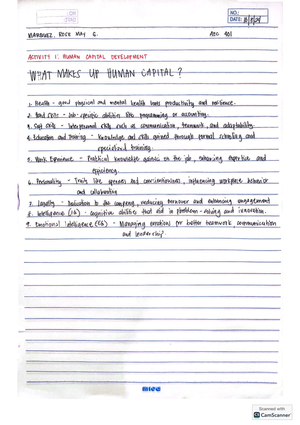 NO.:
DATE:
MARQUEZ, ROSE MAY G.
AEC 401
ACTIVITY 1: HUMAN CAPITAL DEVELOPMENT
WHAT MAKES UP HUMAN CAPITAL?
1. Health - good physical and mental health boosts productivity and resilience.
2. Hard Skills - Job-specific abilities like programming or accounting.
3. Soft Skills - Interpersonal skills such as communication, teamwork, and adaptability.
4. Education and Training - Knowledge and skills gained through formal schooling and
specialized training.
5. Work Experience - Practical knowledge gained on the job, enhancing expertise and
efficiency.
6. Personality - Traits like openness and conscientiousness, influencing workplace behavior
and collaboration
7. Loyalty - Dedication to the company, reducing turnover and enhancing engagement
8. Intelligence (IQ) - cognitive abilities that aid in problem-solving and innovation.
9. Emotional Intelligence (EQ) - Managing emotions for better teamwork, communication
and leadership.
mico
Scanned with
CS CamScanner